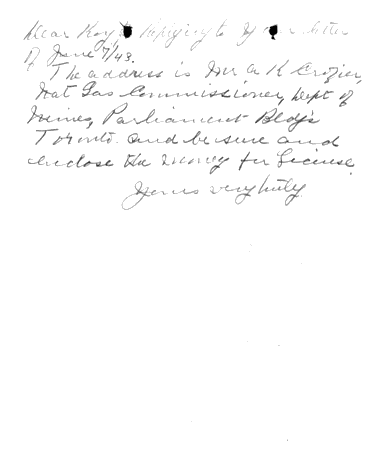 Dear Roy, Replying to your letter
of June 7/43.
The address is Mr A R Crozier,
Nat Gas Commissioner, Dept of
Mines, Parliament Bldgs
Toronto. and be sure and
enclose the money for License.
Yours very truly